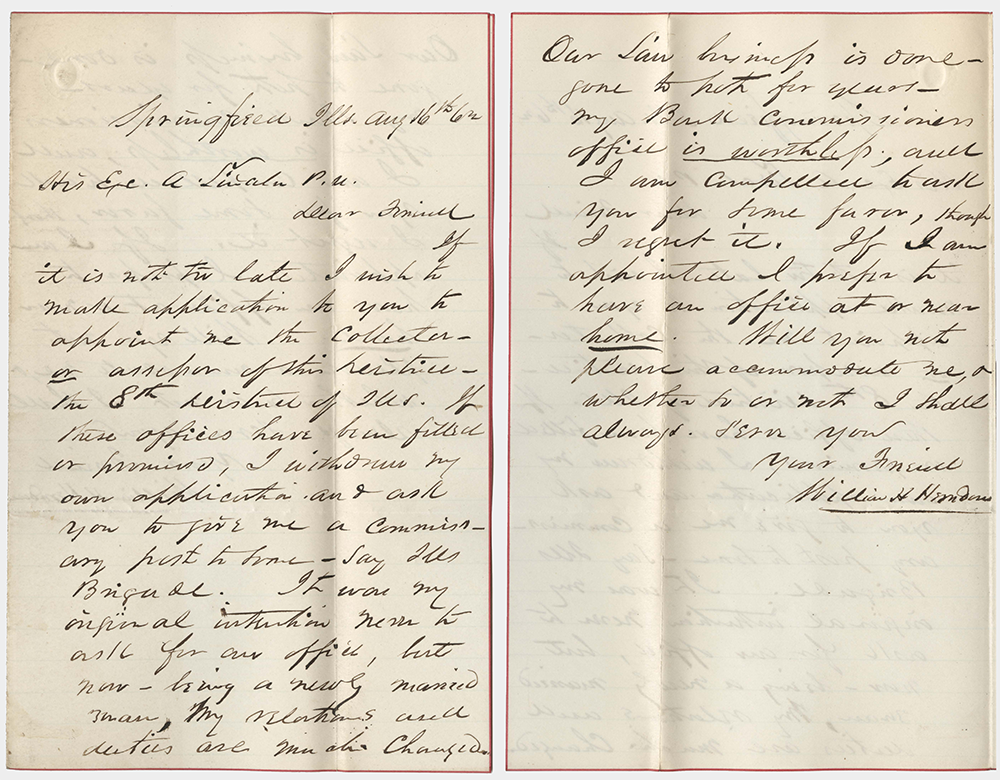 Springfield Ills. Aug 16th 62
His Exc. A Lincoln P. U.
Dear Friend
If
it is not too late I wish to
make application to you to
appoint me the Collector—
or assessor of this District—
the 8th District of Ills. If
these offices have been filled
or promised, I withdraw my
own application and ask
you to give me a commiss-
ary post to some — say Ills
Brigade. It was my
original intention never to
ask for an office, but
now — being a newly married
man, my relations and
duties are much changed.
Our Law business is done—
gone to pot for years—
my Bank Commissioners
office is worthless, and
I am compelled to ask
you for some favor, though
I regret it. If I am
appointed I prefer to
have an office at or near
home. Will you not
please accommodate me, &
whether do or not I shall
always serve you
Your Friend
William H Herndon